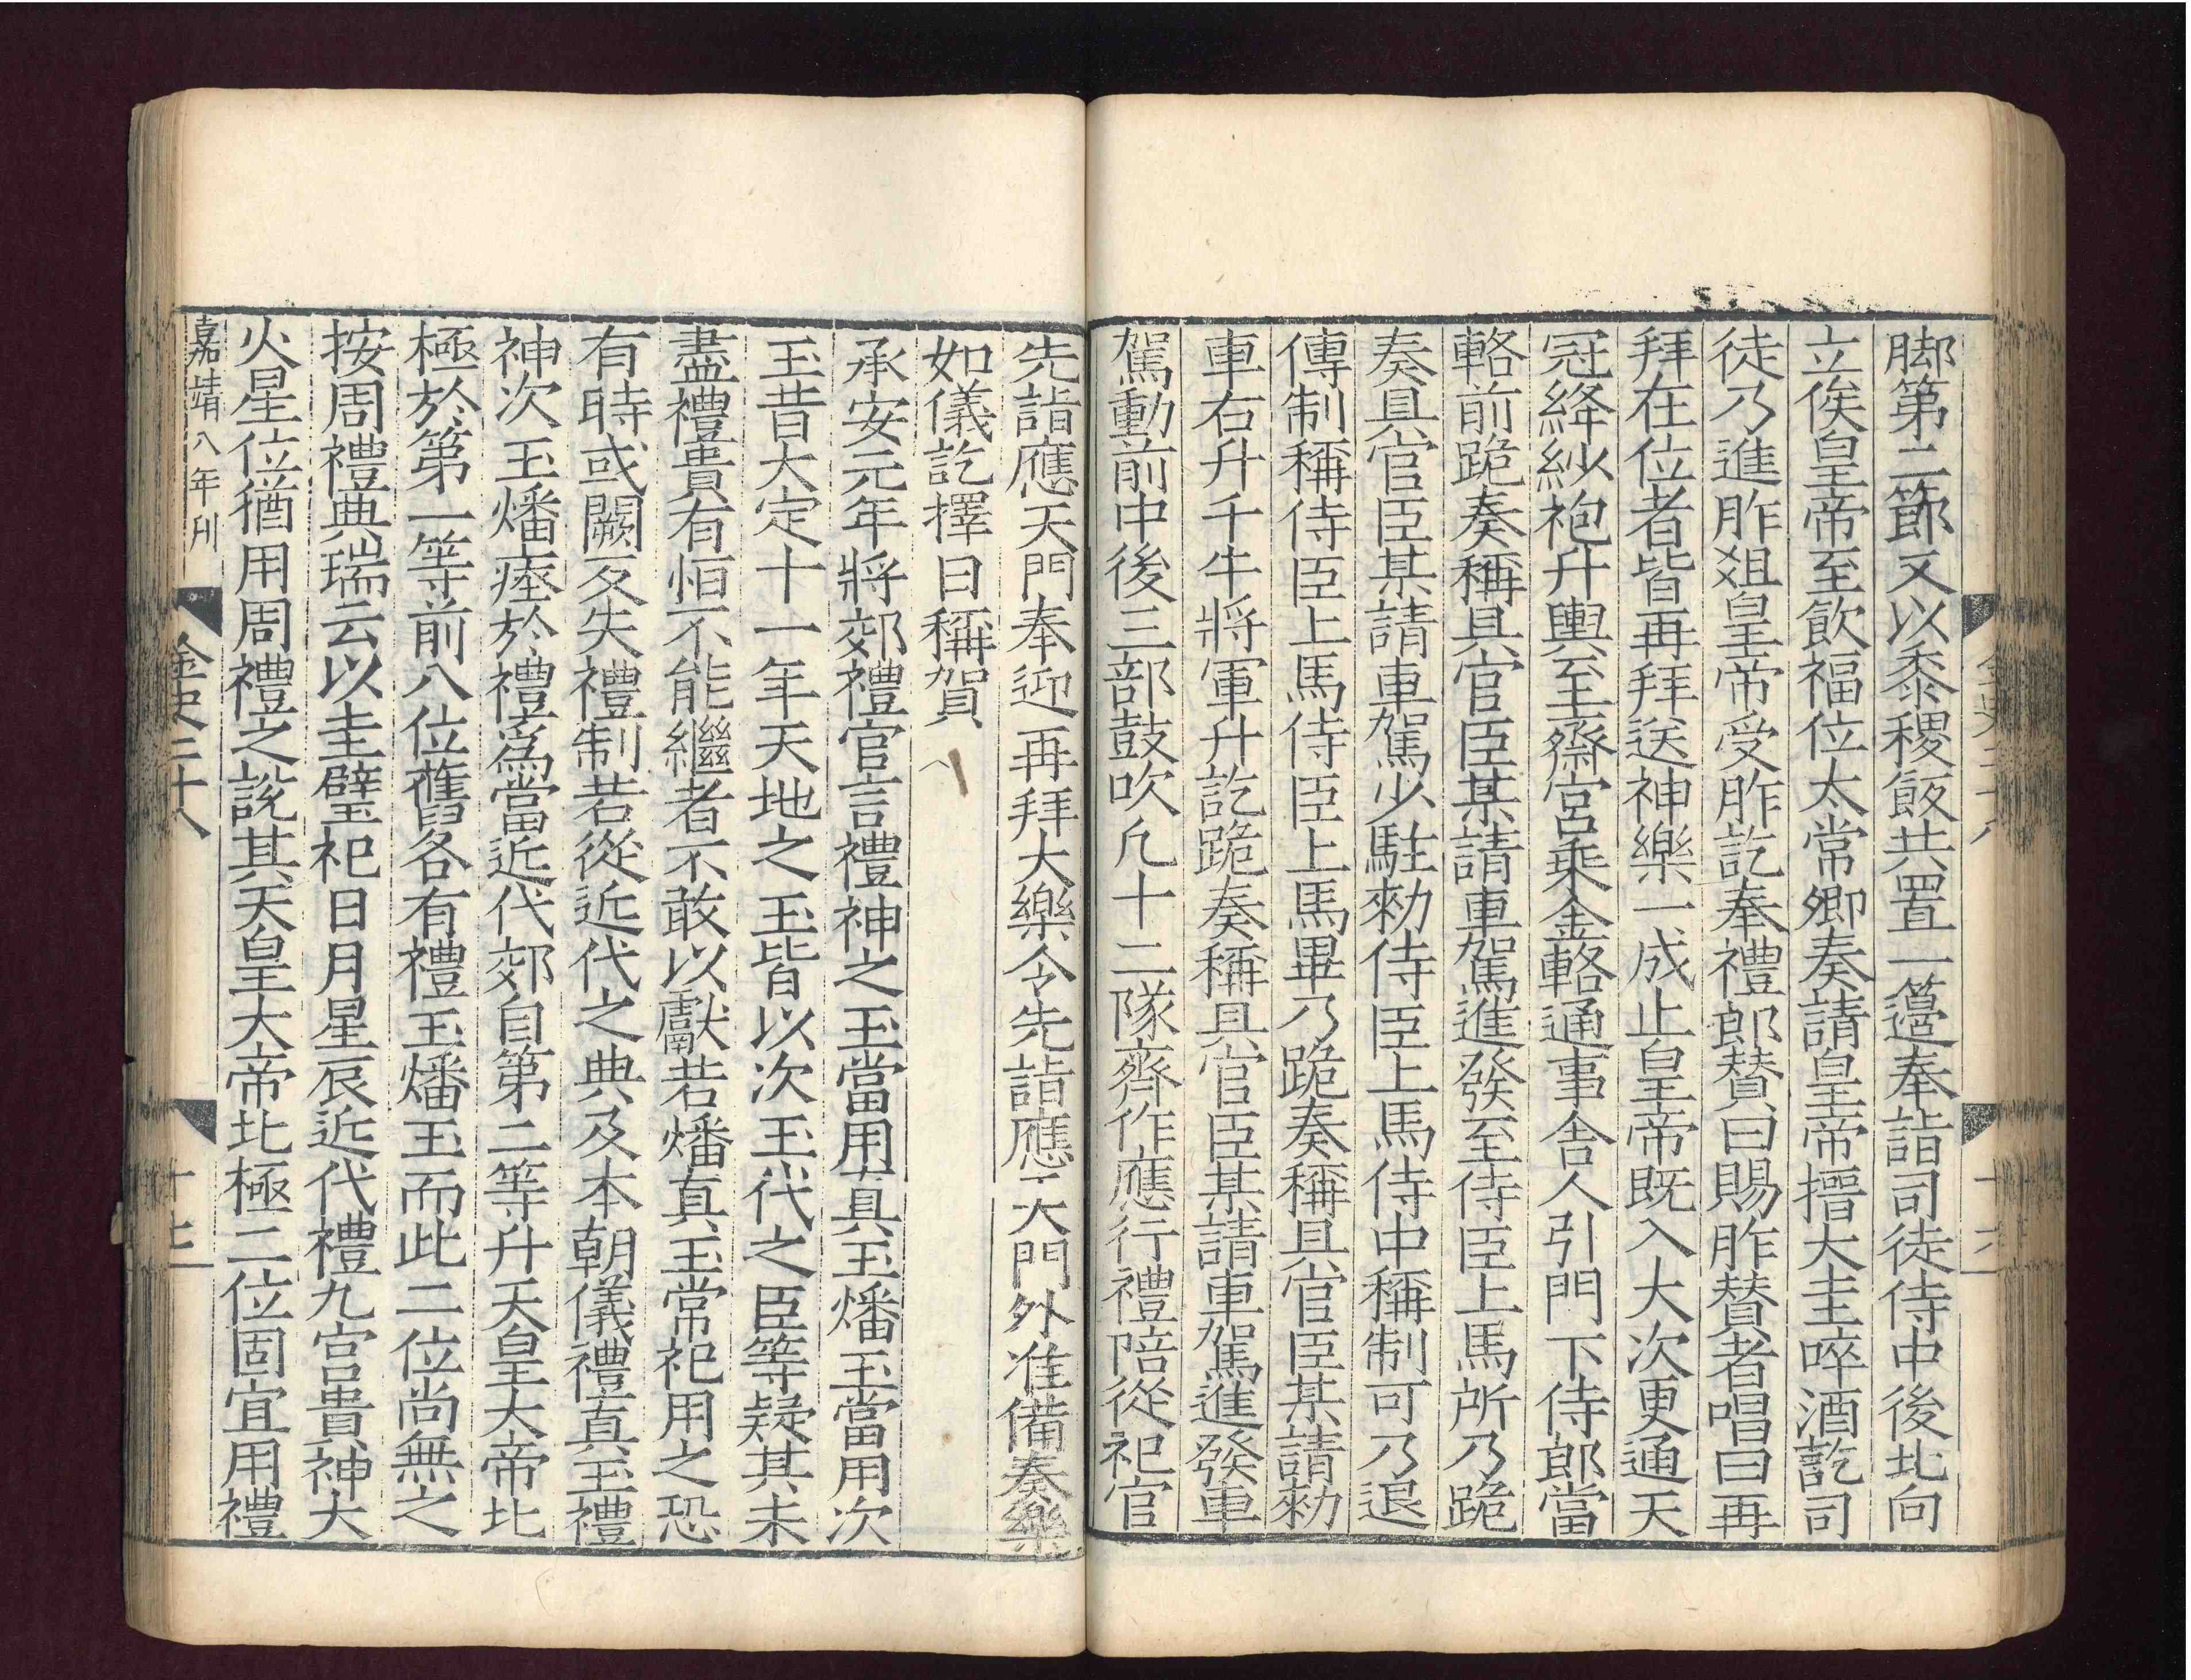 脚第二節又以黍稷飯共置一籩奉詣司徒侍中後北向
立俟皇帝至飲福位太常卿奏請皇帝搢大圭啐酒訖司
徒乃進胙俎皇帝受胙訖奉禮郎賛曰賜胙賛者唱曰再
拜在位者皆再拜送神樂一成止皇帝既入大次更通天
冠絳紗袍升輿至齋宮乘金輅通事舎人引門下侍郎當
輅前跪奏稱具官臣某請車駕進發至侍臣上馬所乃跪
奏具官臣某請車駕少駐勑侍臣上馬侍中稱制可乃退
傳制稱侍臣上馬侍臣上馬畢乃跪奏稱具官臣某請勑
車右升千牛將軍升訖跪奏稱具官臣某請車駕進發車
駕動前中後三部鼓吹凡十二隊齊作應行禮陪從祀官
先詣應天門奉迎再拜大樂令先詣應天門外准備奏樂
如儀訖擇日稱賀
承安元年將郊禮官言禮神之玉當用真玉燔玉當用次
玉昔大定十一年天地之玉皆以次玉代之臣等疑其未
盡禮貴有恒不能繼者不敢以獻若燔真玉常祀用之恐
有時或闕反失禮制若從近代之典及本朝儀禮真玉禮
神次玉燔瘞於禮爲當近代郊自第二等升天皇大帝北
極於第一等前八位舊各有禮玉燔玉而此二位尚無之
按周禮典瑞云以圭璧祀日月星辰近代禮九宮貴神大
火星位猶用周禮之說其天皇大帝北極二位固宜用禮
嘉靖八年刋
金史二十八
十七